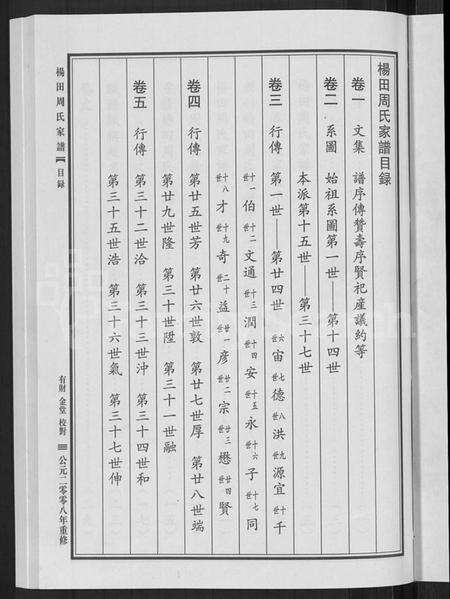 楊田周氏家譜目録
卷一 文集 譜序傳贊壽序賢祀産議約等
卷二 系圖 始祖系圖第一世 第十四世
本派第十五世——第三十七世
卷三 行傳 第一世——第廿四世 六世宙七世德八世洪九世源宜十世千
十一世伯十二世文通十三世潤十四世安十五世永十六世子十七世同
十八世才十九世奇二十世益廿一世彦廿二世宗廿三世懋廿四世賢
卷四 行傳 第廿五世芳 第廿六世敦 第廿七世厚 第廿八世端
第廿九世隆 第三十世陞 第三十一世融
卷五 行傳 第三十二世洽 第三十三世沖 第三十四世和
第三十五世浩 第三十六世氣 第三十七世伸
楊田周氏家譜 目録
有財 金堂 校對 公元二零零八年重修